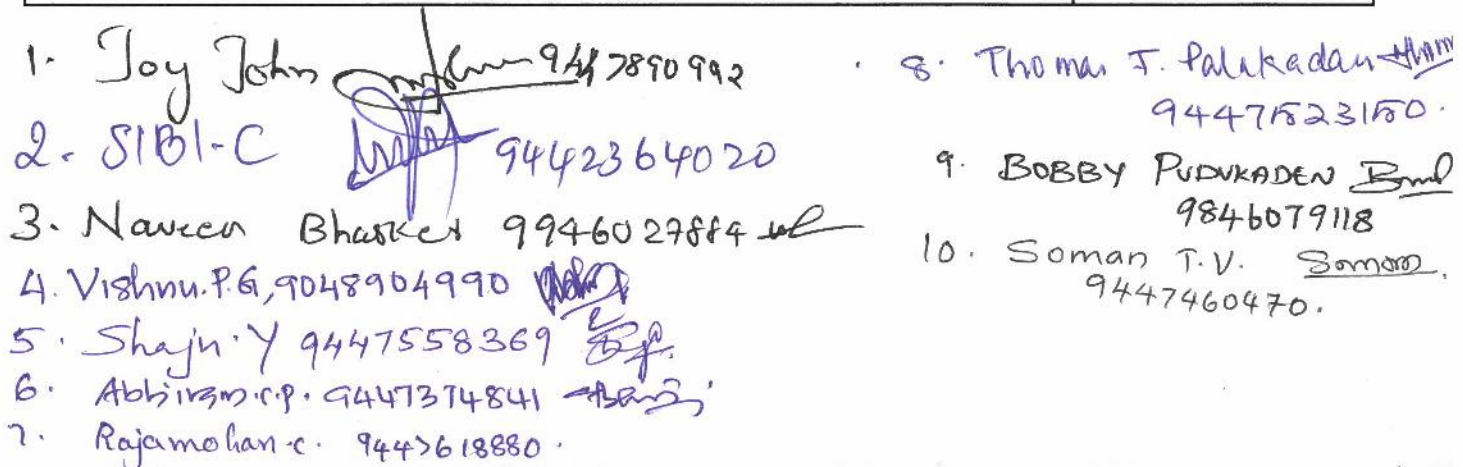 1. Joy John 9447890992
2. SIBI-C 9442364020
3. Naveen Bhasker 9946027884
4. Vishnu.P.G, 9048904990
5. Shaju.Y 9447558369
6. Abhiram.C.P. 9447374841
7. Rajamohan.C. 9447618880.
8. Thomas J. Palakadan
9. BOBBY PUDUKADEN
9846079118
10. Soman T.V.
9447460470.